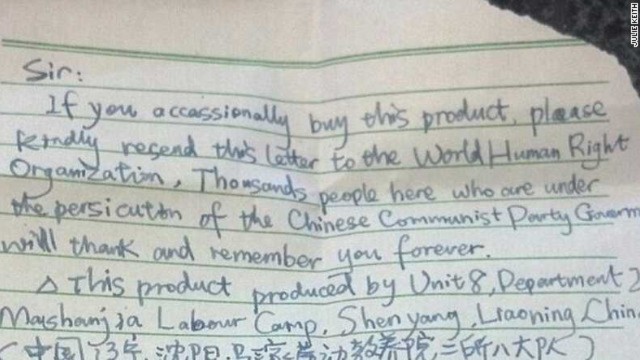 Sir:
If you occassionally buy this product, please
kindly resend this letter to the World Human Right
Organization, Thousands people here who are under
the persicution of the Chinese Communist Party Governm
will thank and remember you forever.
△ This product produced by Unit 8, Department 2
Mashanjia Labour Camp, Shenyang, Liaoning Chin
(中国, 辽宁, 沈阳, 马三家劳动教养院二所八大队)
JULIE KEITH